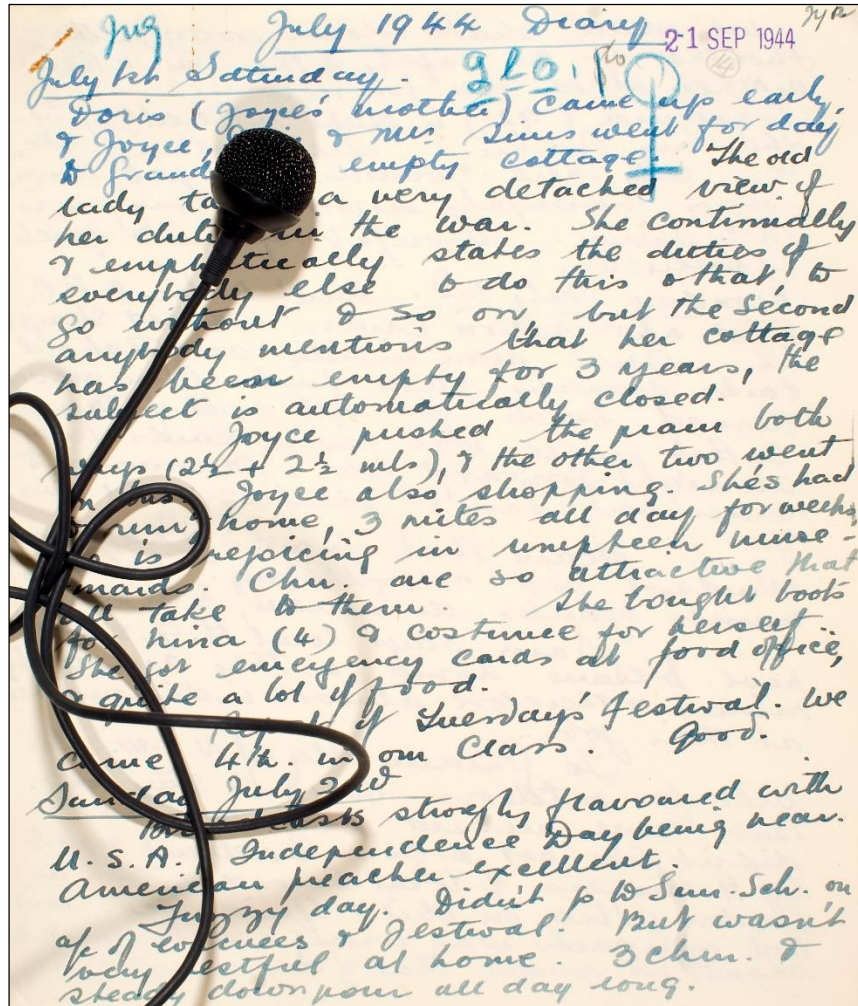 Jug
July 1944 Diary
21 SEP 1944
14
July 1st Saturday.
glo.
Doris (Joyce's mother) came up early,
& Joyce, & Mrs. Sims went for day
to Grand empty cottage. The old
lady ta a very detached view of
her duties in the war. She continually
& emphatically states the duties of
everybody else to do this & that, to
go without & so on, but the second
anybody mentions that her cottage
has been empty for 3 years, the
subject is automatically closed.
Joyce pushed the pram both
ways (2½ + 2½ mls), & the other two went
in bus. Joyce also shopping. She's had
to run home, 3 mites all day for weeks,
is rejoicing in umpteen nurse-
maids. Chn. are so attractive that
all take to them. She bought boots
for Nina (4) & costume for herself.
She got emergency cards at food office,
& quite a lot of food.
Report of Tuesday's Festival. We
came 4th. in our Class. Good.
Sunday July 2nd
strongly flavoured with
U.S.A., Independence Day being near.
American preacher excellent.
day. Didn't go to Sun. Sch. on
a/c of evacuees & Festival. But wasn't
very restful at home. 3 chn. &
steady downpour all day long.